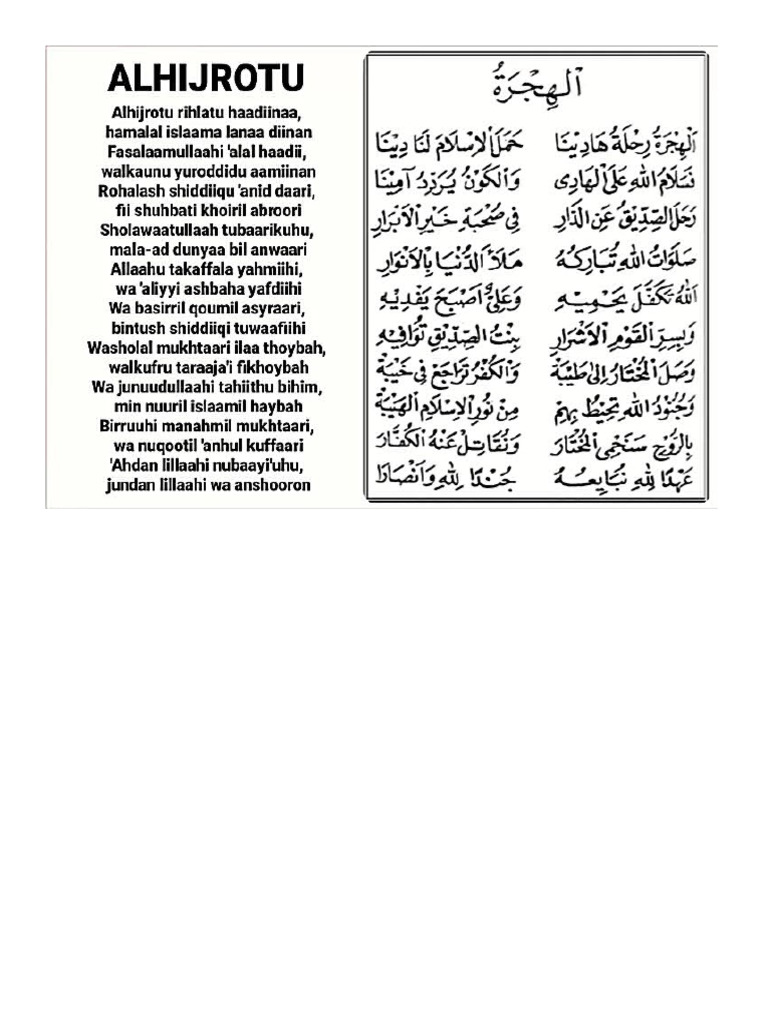 ALHIJROTU
Alhijrotu rihlatu haadiinaa,
hamalal islaama lanaa diinan
Fasalaamullaahi 'alal haadii,
walkaunu yuroddidu aamiinan
Rohalash shiddiiqu 'anid daari,
fii shuhbati khoiril abroori
Sholawaatullaah tubaarikuhu,
mala-ad dunyaa bil anwaari
Allaahu takaffala yahmiihi,
wa 'aliyyi ashbaha yafdiihi
Wa basirril qoumil asyraari,
bintush shiddiiqi tuwaafiihi
Washolal mukhtaari ilaa thoybah,
walkufru taraaja'i fikhoybah
Wa junuudullaahi tahiithu bihim,
min nuuril islaamil haybah
Birruuhi manahmil mukhtaari,
wa nuqootil 'anhul kuffaari
'Ahdan lillaahi nubaayi'uhu,
jundan lillaahi wa anshooron
اَلْهِجْرَةُ
اَلْهِجْرَةُ رِحْلَةُ هَادِيْنَا حَمَلَ الْاِسْلَامَ لَنَا دِيْنَا
فَسَلَامُ اللهِ عَلَى الْهَادِى وَالْكَوْنُ يُرَدِّدُ آمِيْنَا
رَحَلَ الصِّدِّيْقُ عَنِ الدَّارِ فِى صُحْبَةِ خَيْرِ الْاَبْرَارِ
صَلَوَاتُ اللهِ تُبَارِكُهُ مَلَأَ الدُّنْيَا بِالْاَنْوَارِ
اَللهُ تَكَفَّلَ يَحْمِيْهِ وَعَلِيٌّ اَصْبَحَ يَفْدِيْهِ
وَبِسِرِّ الْقَوْمِ الْاَشْرَارِ بِنْتُ الصِّدِّيْقِ تُوَافِيْهِ
وَصَلَ الْمُخْتَارُ اِلَى طَيْبَةْ وَالْكُفْرُ تَرَاجَعَ فِى خَيْبَةْ
وَجُنُوْدُ اللهِ تُحِيْطُ بِهِمْ مِنْ نُوْرِ الْاِسْلَامِ الْهَيْبَةْ
بِالرُّوْحِ سَنَحْمِى الْمُخْتَارَ وَنُقَاتِلُ عَنْهُ الْكُفَّارَ
عَهْدًا لِلّٰهِ نُبَايِعُهُ جُنْدًا لِلّٰهِ وَاَنْصَارَا